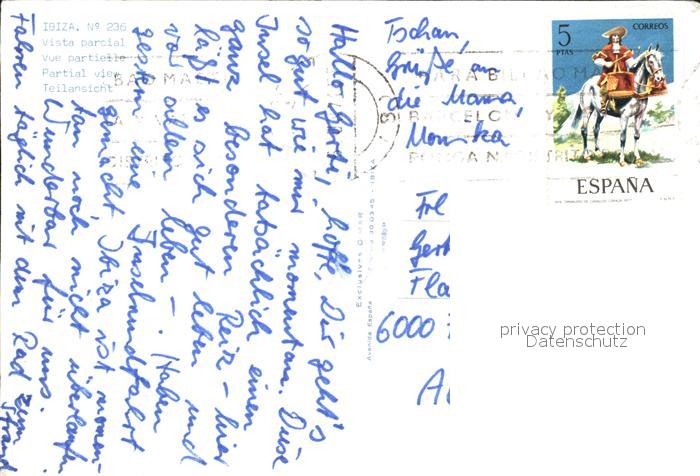 IBIZA. Nº 236
Vista parcial
Vue partielle
Partial view
Teilansicht
Hallo Gerti, hoffe, Dir geht's
so gut wie mir momentan. Diese
Insel hat tatsächlich einen
ganz besonderen Reiz - hier
läßt es sich gut leben und
vor allem leben - Haben
gestern eine Inselrundfahrt
gemacht Ibiza ist momen-
tan noch nicht überlaufen
Wunderbar für uns.
Fahren täglich mit dem Rad zum
Strand
Tschau,
Grüße an
die Mama,
Monika
Exclusivas
Avenida España
IBIZA
5
PTAS
CORREOS
ESPAÑA
BARCELONA
PONGA
Frl
Gert
Fla
6000
privacy protection
Datenschutz